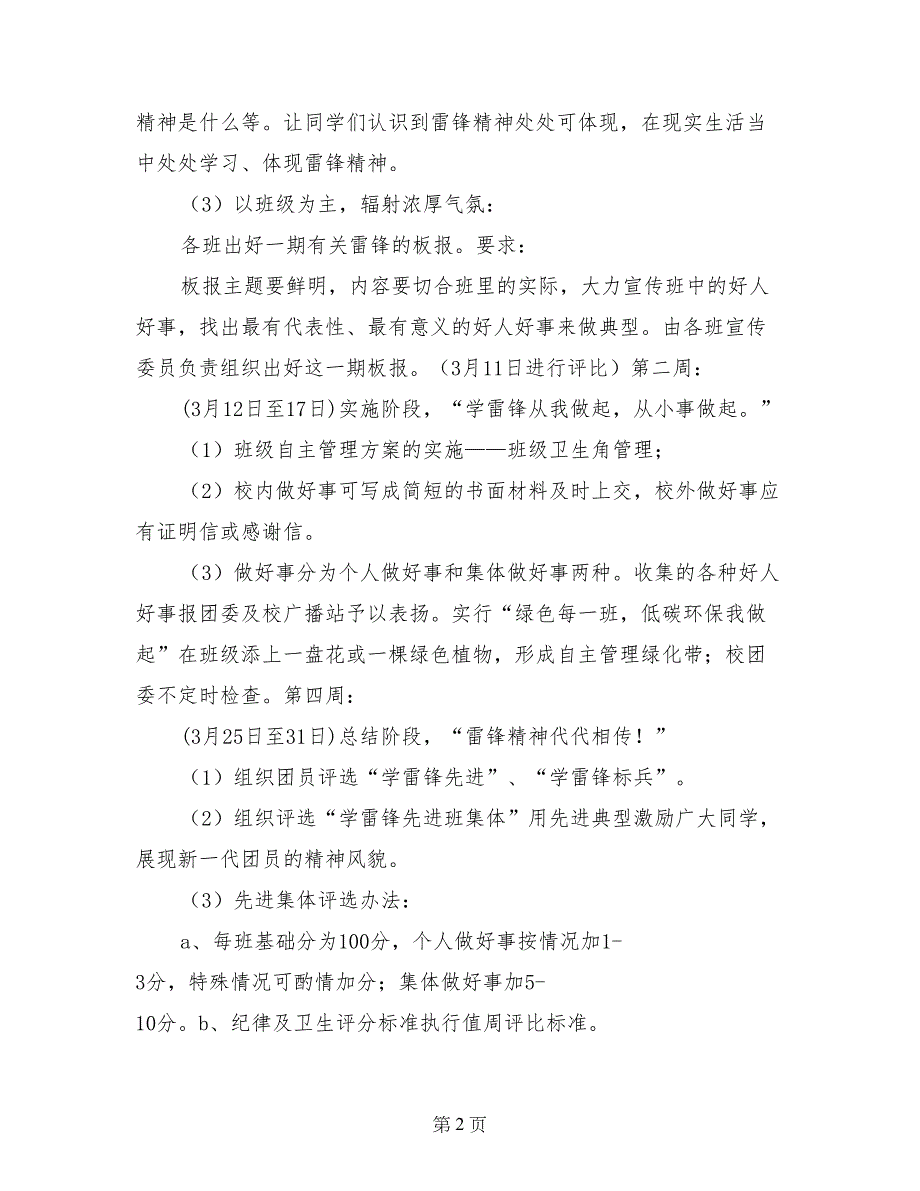 精神是什么等。让同学们认识到雷锋精神处处可体现，在现实生活当
中处处学习、体现雷锋精神。
（3）以班级为主，辐射浓厚气氛：
各班出好一期有关雷锋的板报。要求：
板报主题要鲜明，内容要切合班里的实际，大力宣传班中的好人
好事，找出最有代表性、最有意义的好人好事来做典型。由各班宣传
委员负责组织出好这一期板报。（3月11日进行评比）第二周：
(3月12日至17日)实施阶段，“学雷锋从我做起，从小事做起。”
（1）班级自主管理方案的实施——班级卫生角管理；
（2）校内做好事可写成简短的书面材料及时上交，校外做好事应
有证明信或感谢信。
（3）做好事分为个人做好事和集体做好事两种。收集的各种好人
好事报团委及校广播站予以表扬。实行“绿色每一班，低碳环保我做
起”在班级添上一盘花或一棵绿色植物，形成自主管理绿化带；校团
委不定时检查。第四周：
(3月25日至31日)总结阶段，“雷锋精神代代相传！”
（1）组织团员评选“学雷锋先进”、“学雷锋标兵”。
（2）组织评选“学雷锋先进班集体”用先进典型激励广大同学，
展现新一代团员的精神风貌。
（3）先进集体评选办法：
a、每班基础分为100分，个人做好事按情况加1-
3分，特殊情况可酌情加分；集体做好事加5-
10分。b、纪律及卫生评分标准执行值周评比标准。
第 2 页